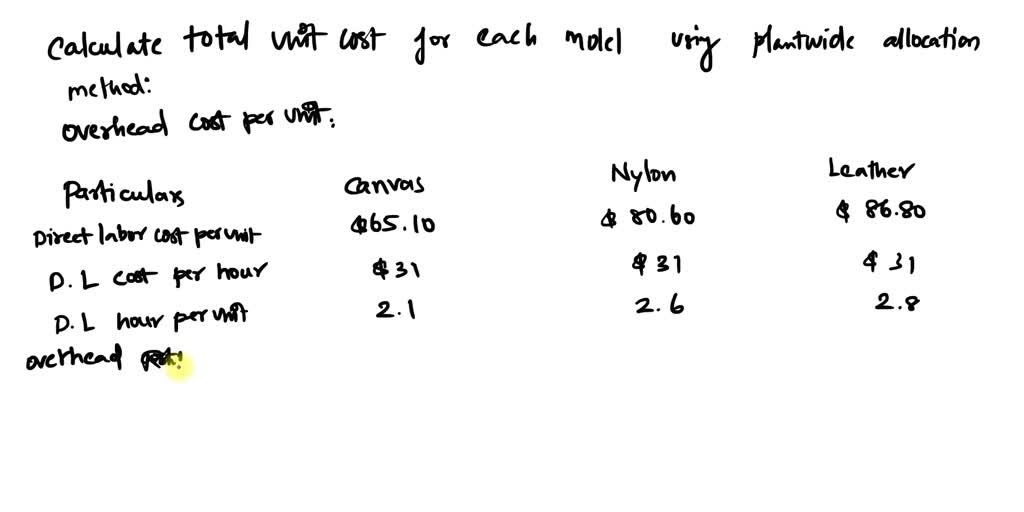 Calculate total unit cost for each model using plantwide allocation
method:
overhead cost per unit:
Particulars Canvas Nylon Leather
Direct labor cost per unit $65.10 $ 80.60 $ 86.80
D.L cost per hour $31 $31 $31
D.L hour per unit 2.1 2.6 2.8
overhead